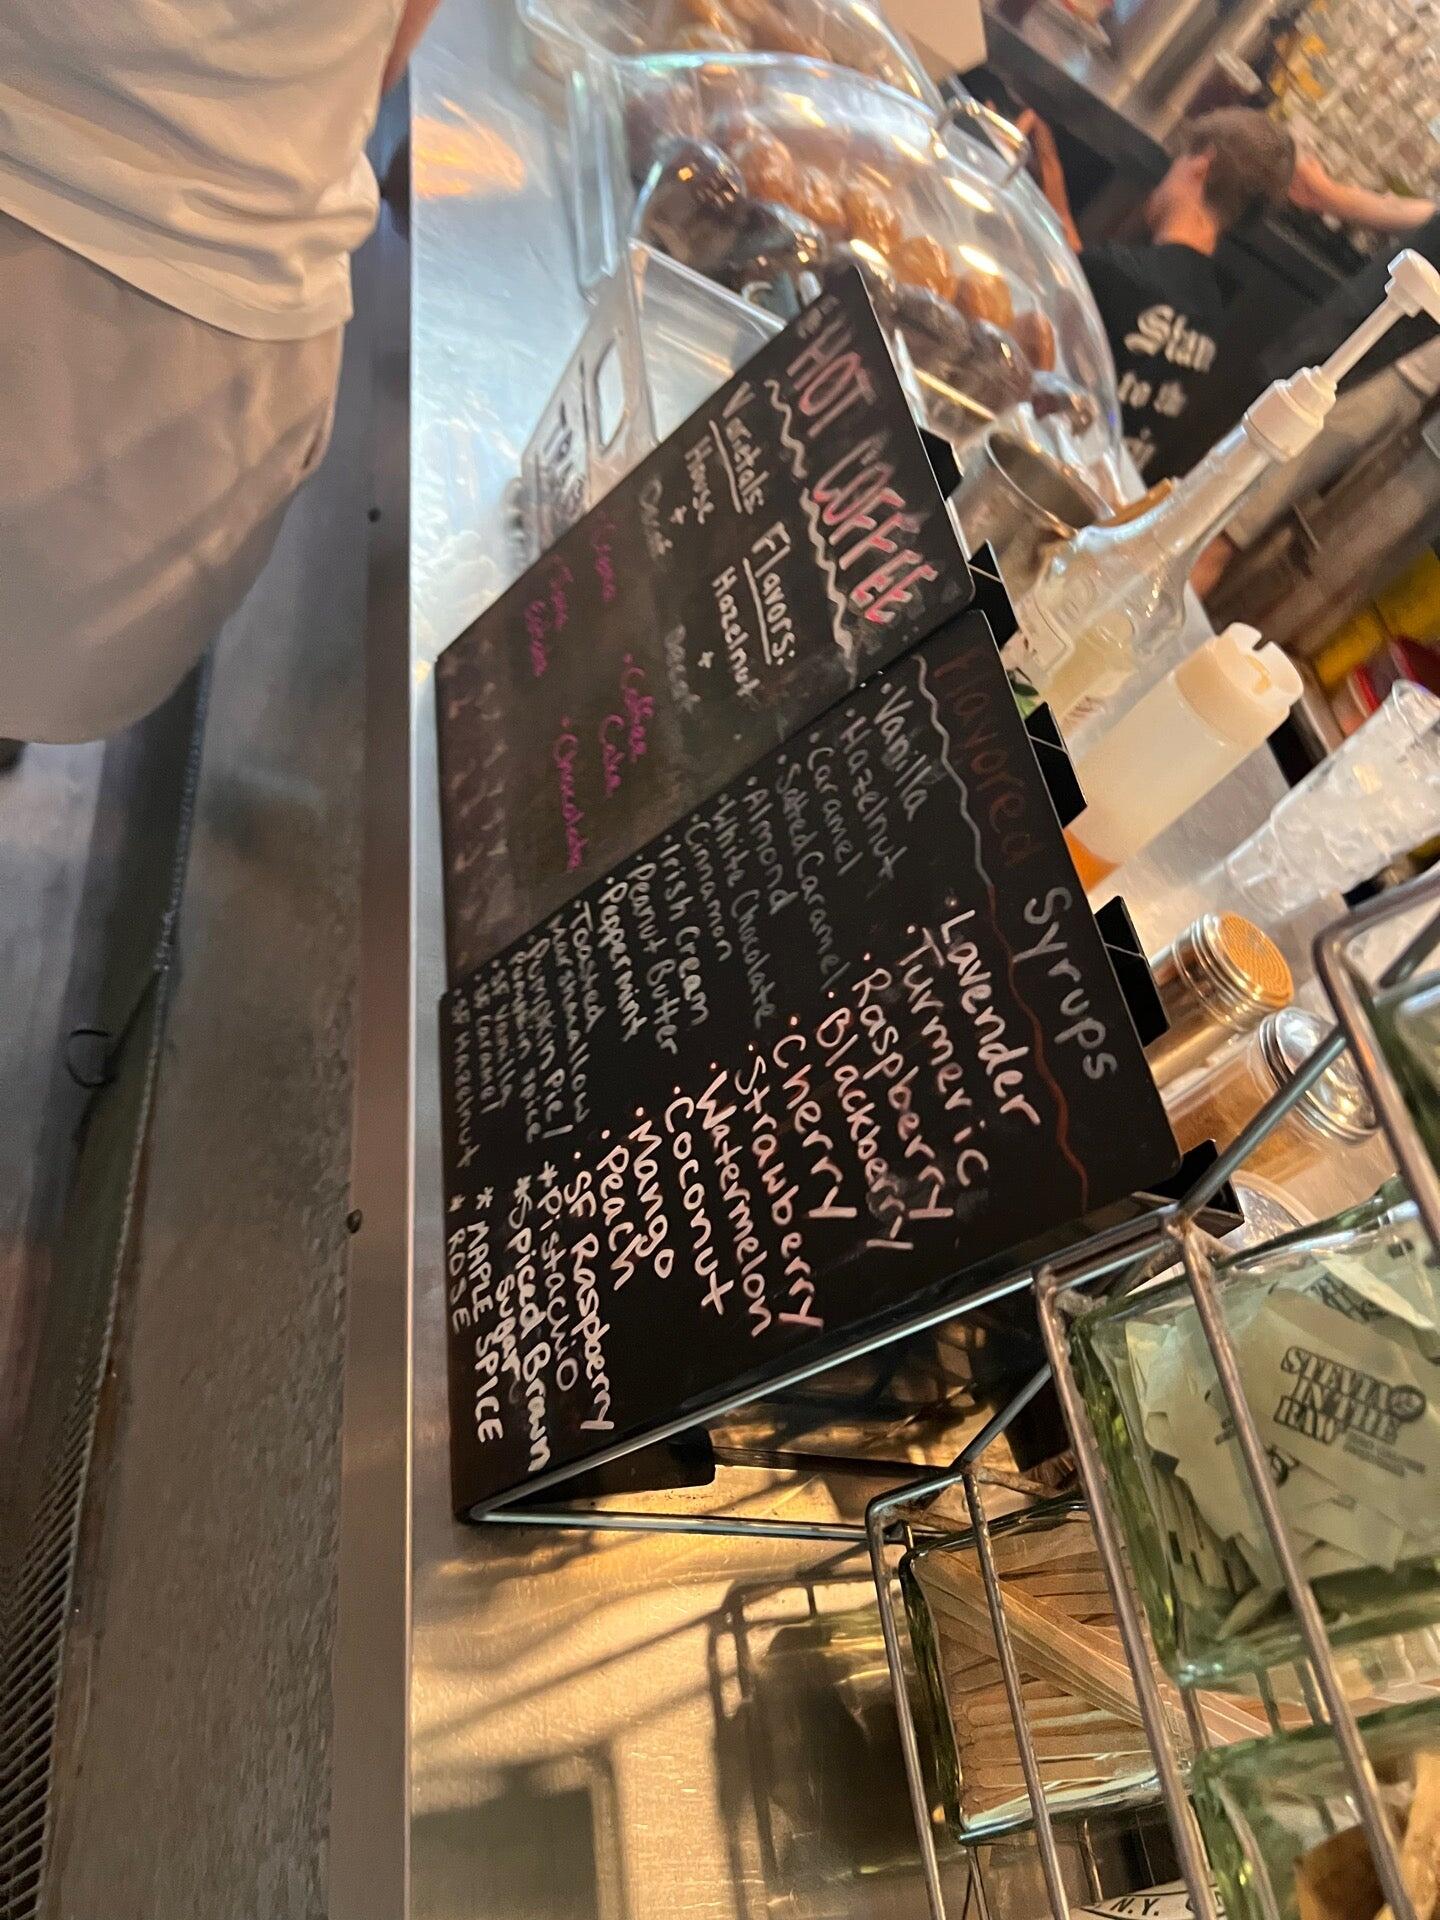 HOT COFFEE
Varietals:
House
+
Flavors:
Hazelnut
+
Decaf
•Coffee
Cake
•Chocolate
Flavored Syrups
•Vanilla
•Hazelnut
•Caramel
•Salted Caramel
•Almond
•White Chocolate
•Cinnamon
•Irish Cream
•Peanut Butter
•Peppermint
•Toasted
Marshmallow
•Pumpkin Pie/
Pumpkin Spice
•SF Vanilla
•SF Caramel
•SF Hazelnut
•Lavender
•Turmeric
•Raspberry
•Blackberry
•Cherry
•Strawberry
•Watermelon
•Coconut
•Mango
•Peach
•SF Raspberry
*Pistachio
*Spiced Brown
Sugar
*MAPLE SPICE
*ROSE
Stan
to the
STEVIA
IN THE
RAW
N.Y.